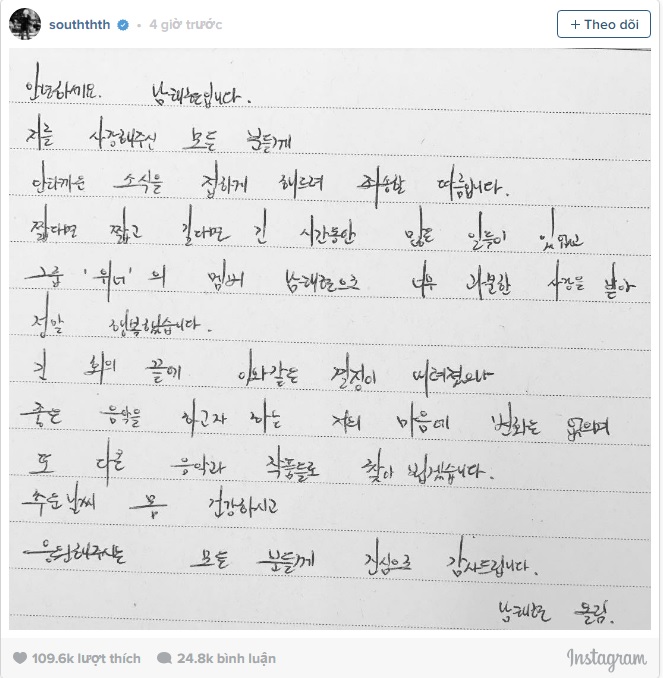 souththth • 4 giờ trước
+ Theo dõi
안녕하세요. 남태현입니다.
저를 사랑해주신 모든 분들께
안타까운 소식을 접하게 해드려 죄송할 따름입니다.
짧다면 짧고 길다면 긴 시간동안 많은 일들이 있었고
그룹 '위너' 의 멤버 남태현으로 너무 과분한 사랑을 받아
정말 행복했습니다.
긴 회의 끝에 이와같은 결정이 내려졌으나
좋은 음악을 하고자 하는 저의 마음에 변화는 없으며
또 다른 음악과 작품들로 찾아 뵙겠습니다.
추운날씨 몸 건강하시고
응원해주시는 모든 분들께 진심으로 감사드립니다.
남태현 올림.
109.6k lượt thích 24.8k bình luận
Instagram